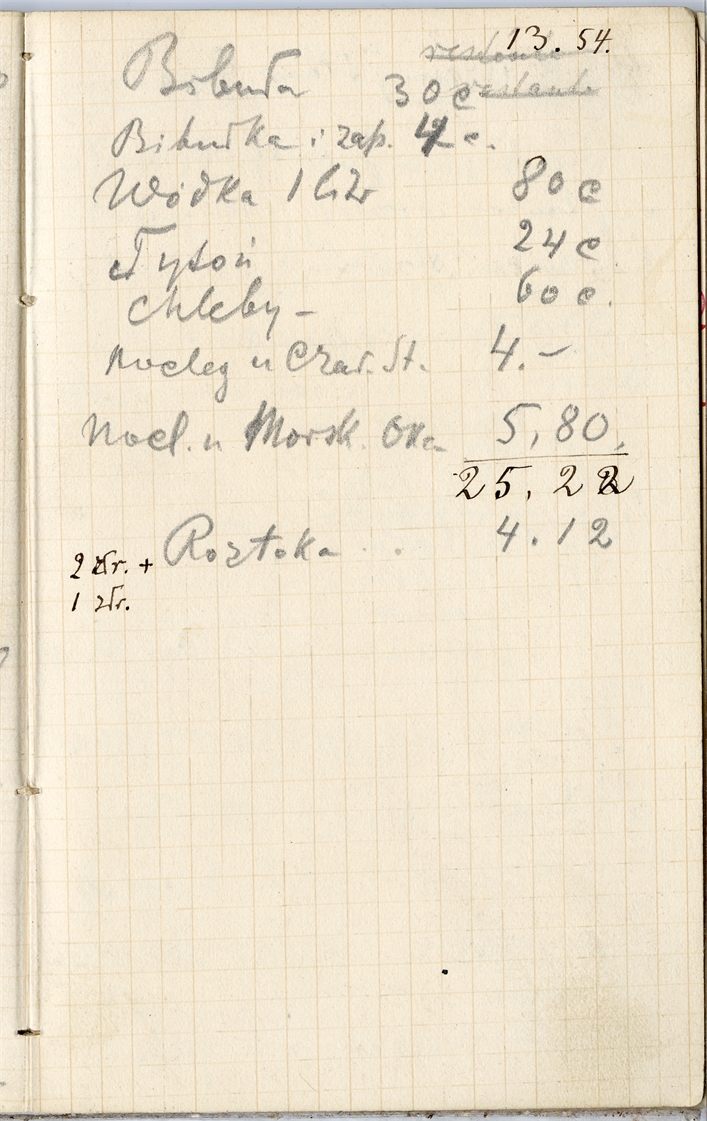 13.54.
Bibuła 30 c
Bibułka i zap. 4 c.
Wódka 1 litr 80 c
Tytoń 24 c
Chleby – 60 c.
Nocleg u Czar. St. 4.–
Nocl. u Morsk. Oka 5,80,
25,22
Roztoka . . 4.12
2 złr. +
1 złr.